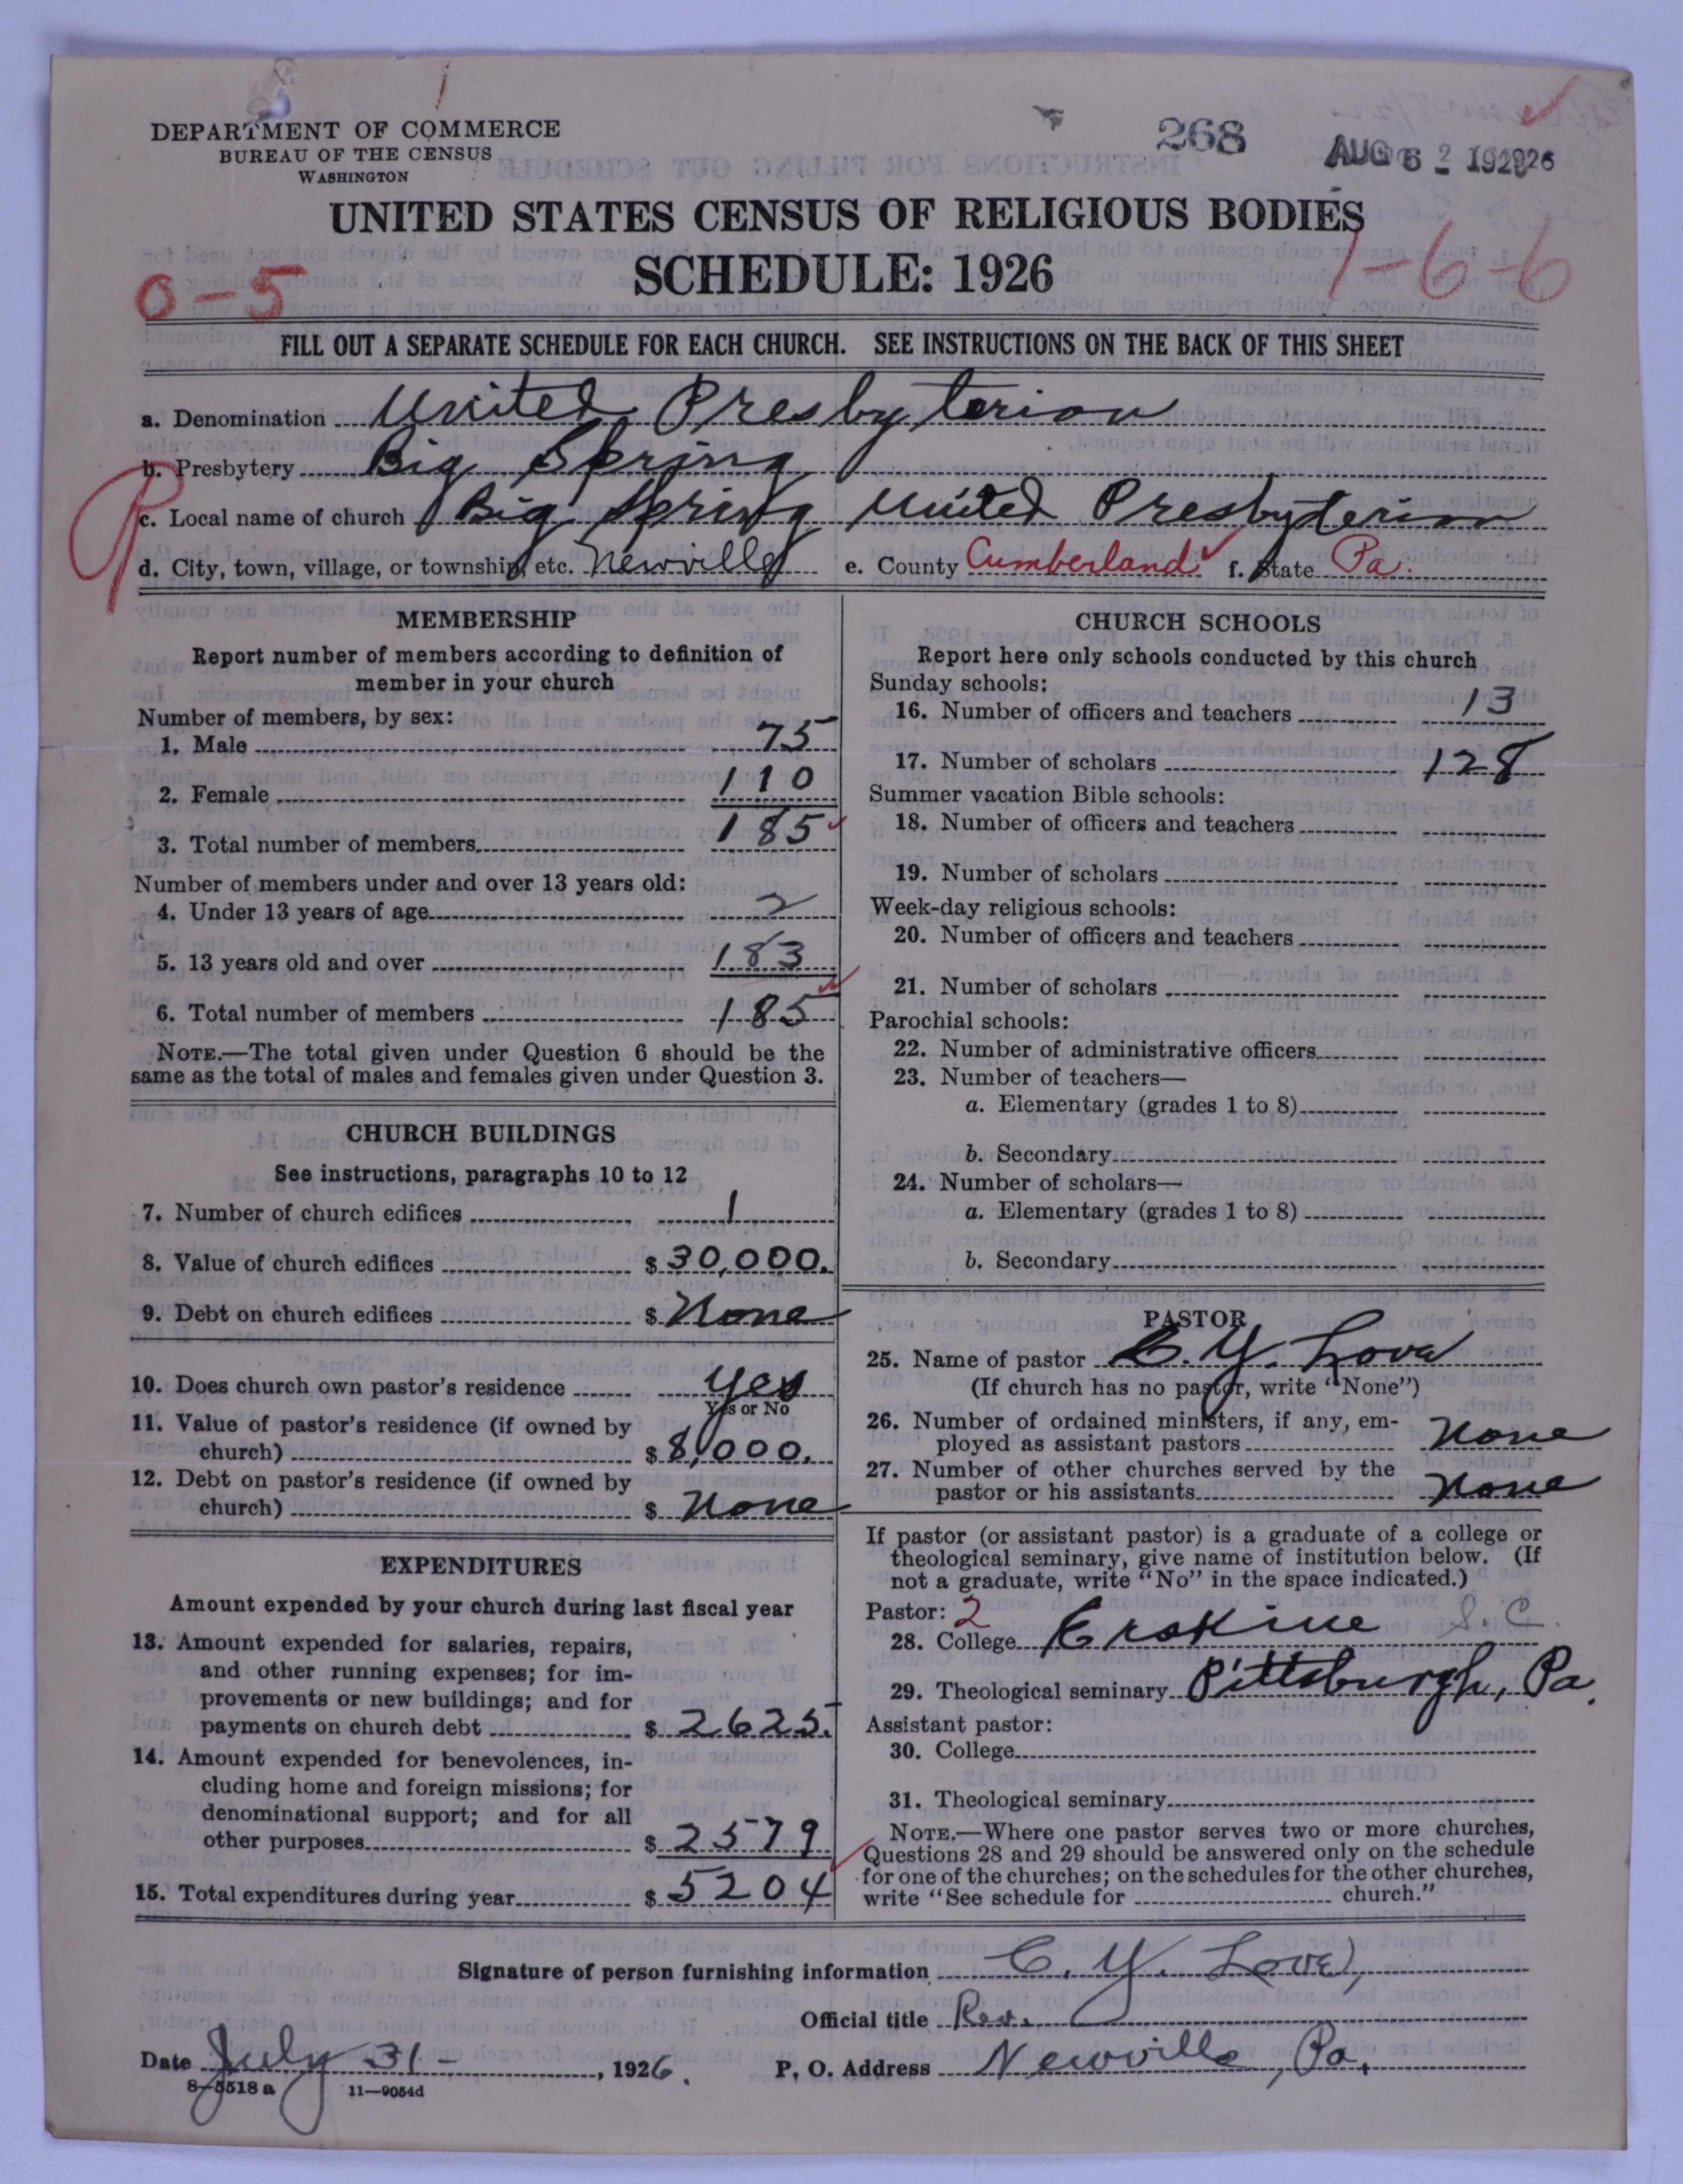 DEPARTMENT OF COMMERCE
BUREAU OF THE CENSUS
WASHINGTON
268
AUG 6 2 192926
UNITED STATES CENSUS OF RELIGIOUS BODIES
SCHEDULE: 1926
0-5
1-6-6
FILL OUT A SEPARATE SCHEDULE FOR EACH CHURCH. SEE INSTRUCTIONS ON THE BACK OF THIS SHEET
a. Denomination United Presbyterian
b. Presbytery Big Spring
c. Local name of church Big Spring United Presbyterian
d. City, town, village, or township, etc. Newville e. County Cumberland f. State Pa.
MEMBERSHIP
Report number of members according to definition of
member in your church
Number of members, by sex:
1. Male 75
2. Female 110
3. Total number of members 185
Number of members under and over 13 years old:
4. Under 13 years of age 2
5. 13 years old and over 183
6. Total number of members 185
NOTE.—The total given under Question 6 should be the
same as the total of males and females given under Question 3.
CHURCH BUILDINGS
See instructions, paragraphs 10 to 12
7. Number of church edifices 1
8. Value of church edifices $ 30,000.
9. Debt on church edifices $ None
10. Does church own pastor's residence Yes
Yes or No
11. Value of pastor's residence (if owned by
church) $ 8,000.
12. Debt on pastor's residence (if owned by
church) $ None
EXPENDITURES
Amount expended by your church during last fiscal year
13. Amount expended for salaries, repairs,
and other running expenses; for im-
provements or new buildings; and for
payments on church debt $ 2625.
14. Amount expended for benevolences, in-
cluding home and foreign missions; for
denominational support; and for all
other purposes $ 2579
15. Total expenditures during year $ 5204
CHURCH SCHOOLS
Report here only schools conducted by this church
Sunday schools:
16. Number of officers and teachers 13
17. Number of scholars 128
Summer vacation Bible schools:
18. Number of officers and teachers
19. Number of scholars
Week-day religious schools:
20. Number of officers and teachers
21. Number of scholars
Parochial schools:
22. Number of administrative officers
23. Number of teachers—
a. Elementary (grades 1 to 8)
b. Secondary
24. Number of scholars—
a. Elementary (grades 1 to 8)
b. Secondary
PASTOR
25. Name of pastor C. Y. Love
(If church has no pastor, write "None")
26. Number of ordained ministers, if any, em-
ployed as assistant pastors None
27. Number of other churches served by the
pastor or his assistants None
If pastor (or assistant pastor) is a graduate of a college or
theological seminary, give name of institution below. (If
not a graduate, write "No" in the space indicated.)
Pastor: 2
28. College Erskine S. C.
29. Theological seminary Pittsburgh, Pa.
Assistant pastor:
30. College
31. Theological seminary
NOTE.—Where one pastor serves two or more churches,
Questions 28 and 29 should be answered only on the schedule
for one of the churches; on the schedules for the other churches,
write "See schedule for church."
Signature of person furnishing information C. Y. Love,
Official title Rev.
Date July 31-, 1926. P. O. Address Newville, Pa.
8-5518 a 11—9054d